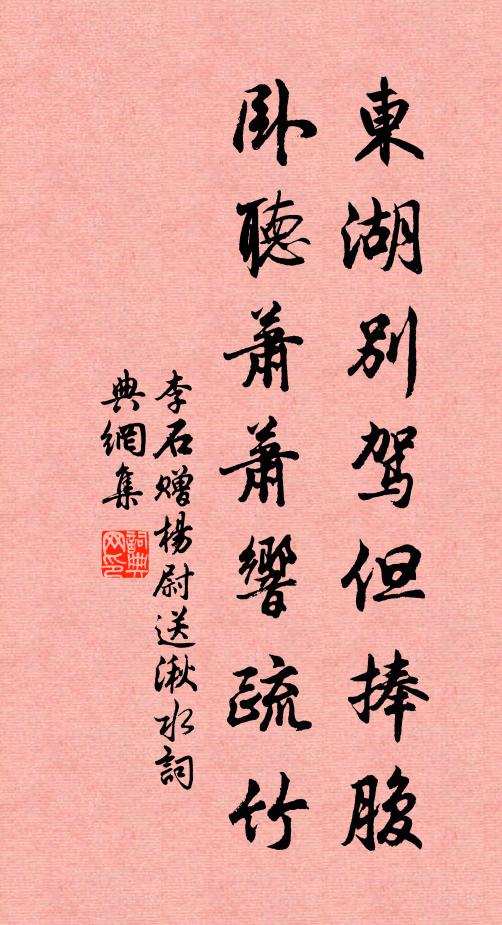 東湖別駕但捧腹
卧聽蕭蕭響疏竹
李石贈楊尉送湫水詞
典網集
詞典网印